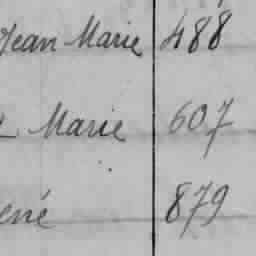 Jean Marie 488
Marie 607
ené 879